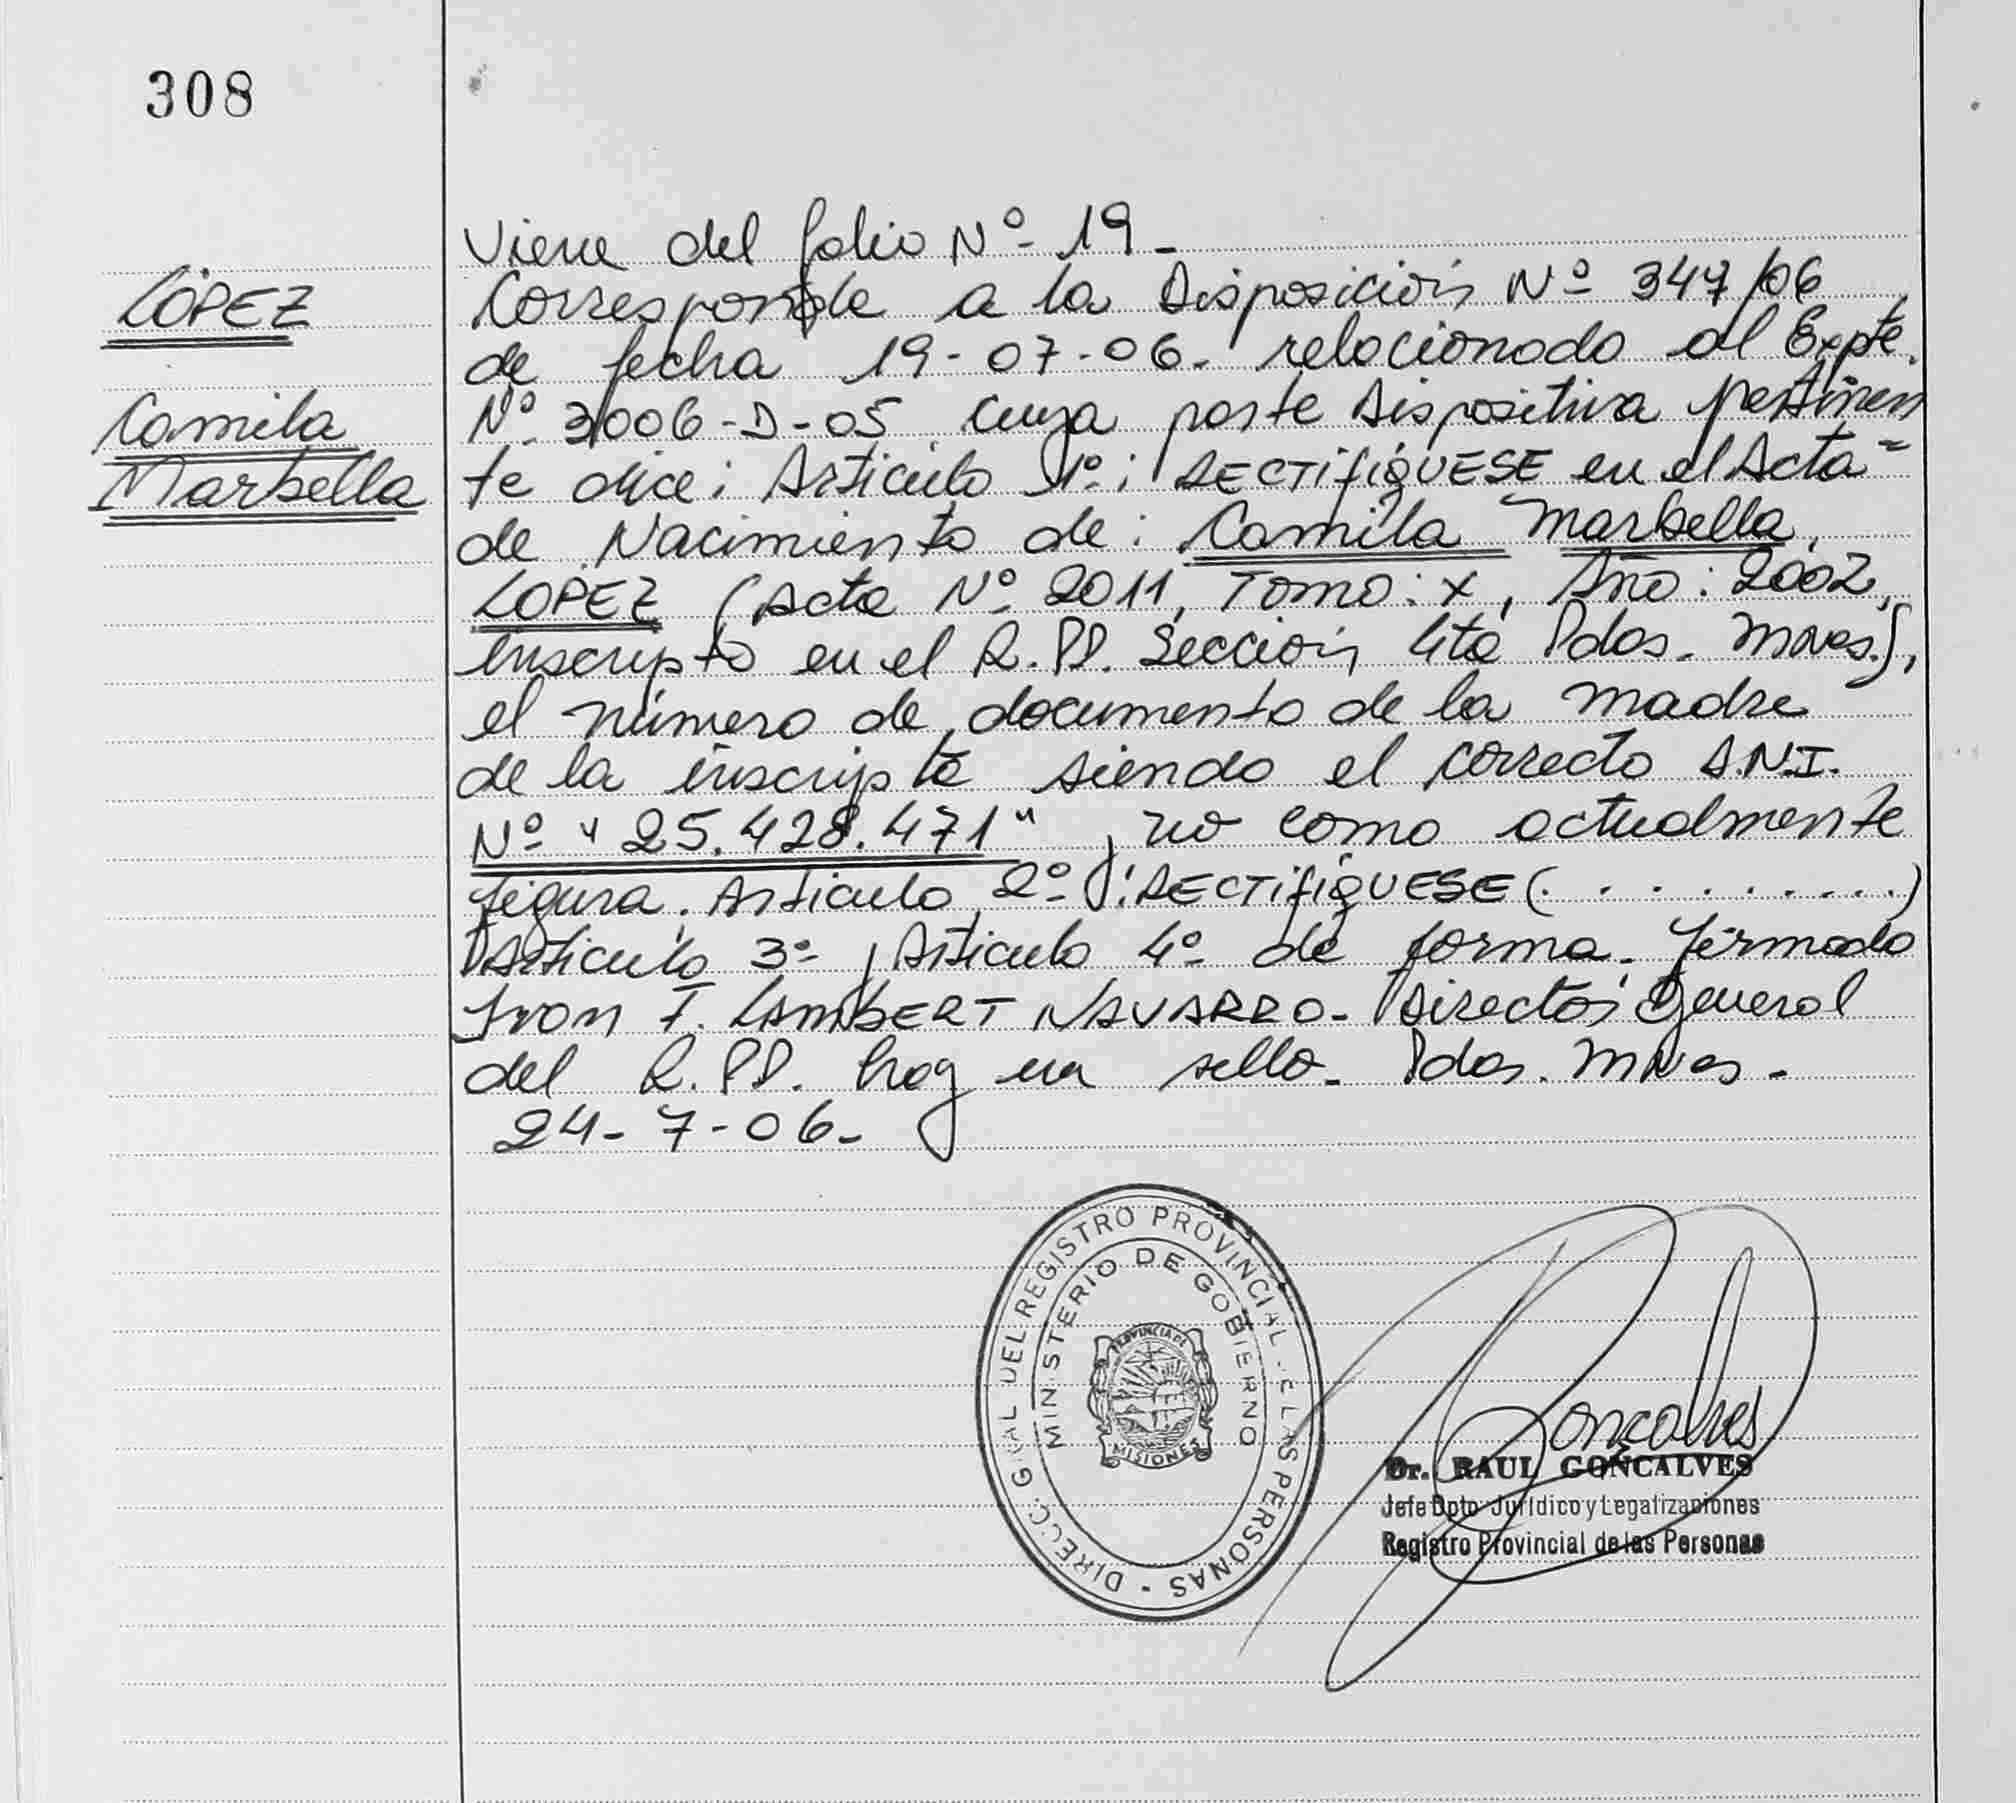 308
LOPEZ
Camila
Marbella
Viene del folio Nº 19 -
Corresponde a la Disposición Nº 347/06
de fecha 19-07-06. relacionado al Expte.
Nº 3006-D-05. Cuya parte dispositiva pertinen
te dice: Artículo 1º: RECTIFIQUESE en el Acta =
de Nacimiento de: Camila Marbella
LOPEZ (Acta Nº 2011, Tomo: X, Año: 2002,
inscripto en el R.PP. Sección 4ta Pdas. Mnes.),
el número de documento de la madre
de la inscripta siendo el correcto D.N.I.
Nº "25.428.471", no como actualmente
figura. Articulo 2º: RECTIFIQUESE (. . . . . . . . . .)
Articulo 3º y Articulo 4º de forma. Firmado
Ivon F. LAMBERT NAVARRO - Director General
del R.PP. hay un sello - Pdas. Mnes -
24-7-06 -
DIRECC. GRAL DEL REGISTRO PROVINCIAL LAS PERSONAS
MINISTERIO DE GOBIERNO
PROVINCIA DE
MISIONES
Goncalves
Dr. RAUL GONCALVES
Jefe Dpto Jurídico y Legalizaciones
Registro Provincial de las Personas